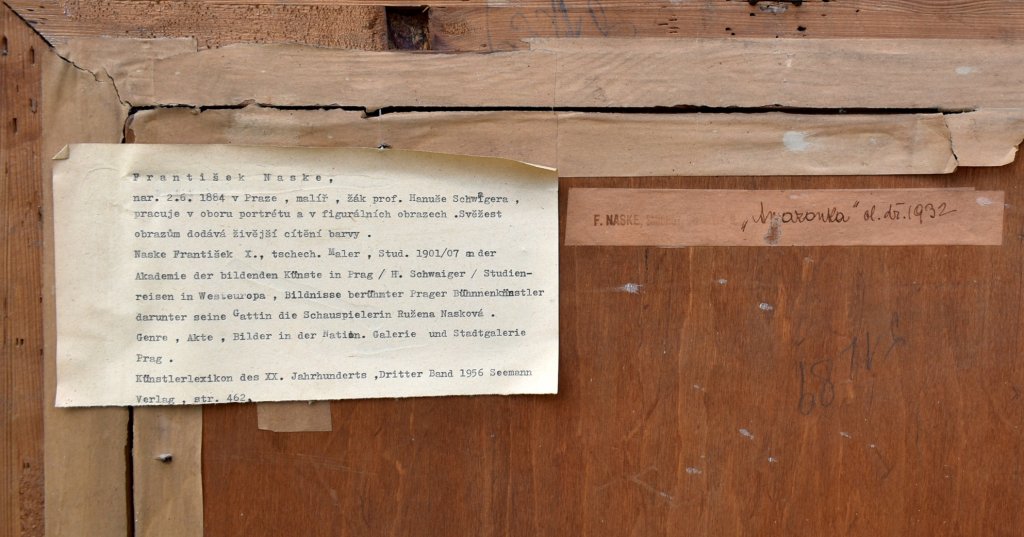 František Naske,
nar. 2.6. 1884 v Praze , malíř , žák prof. Hanuše Schwigera ,
pracuje v oboru portrétu a v figurálních obrazech .Svěžest
obrazům dodává živější cítění barvy .
Naske František X., tschech. Maler , Stud. 1901/07 an der
Akademie der bildenden Künste in Prag / H. Schwaiger / Studien-
reisen in Westeuropa , Bildnisse berühmter Prager Bühnnenkünstler
darunter seine Gattin die Schauspielerin Ružena Nasková .
Genre , Akte , Bilder in der Nation. Galerie und Stadtgalerie
Prag .
Künstlerlexikon des XX. Jahrhunderts ,Dritter Band 1956 Seemann
Verlag , str. 462.
F. NASKE, „Amazonka" ol. dř. 1932